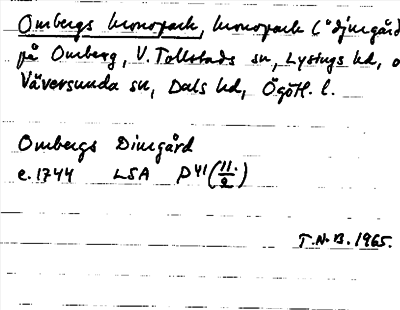 Ombergs kronopark, kronopark ("djurgård
på Omberg, V. Tollstads sn, Lysings hd, o
Väversunda sn, Dals hd, Ögötl. l.
Ombergs Diurgård
c. 1744 LSA D41 (11./2)
T.N.B. 1965.